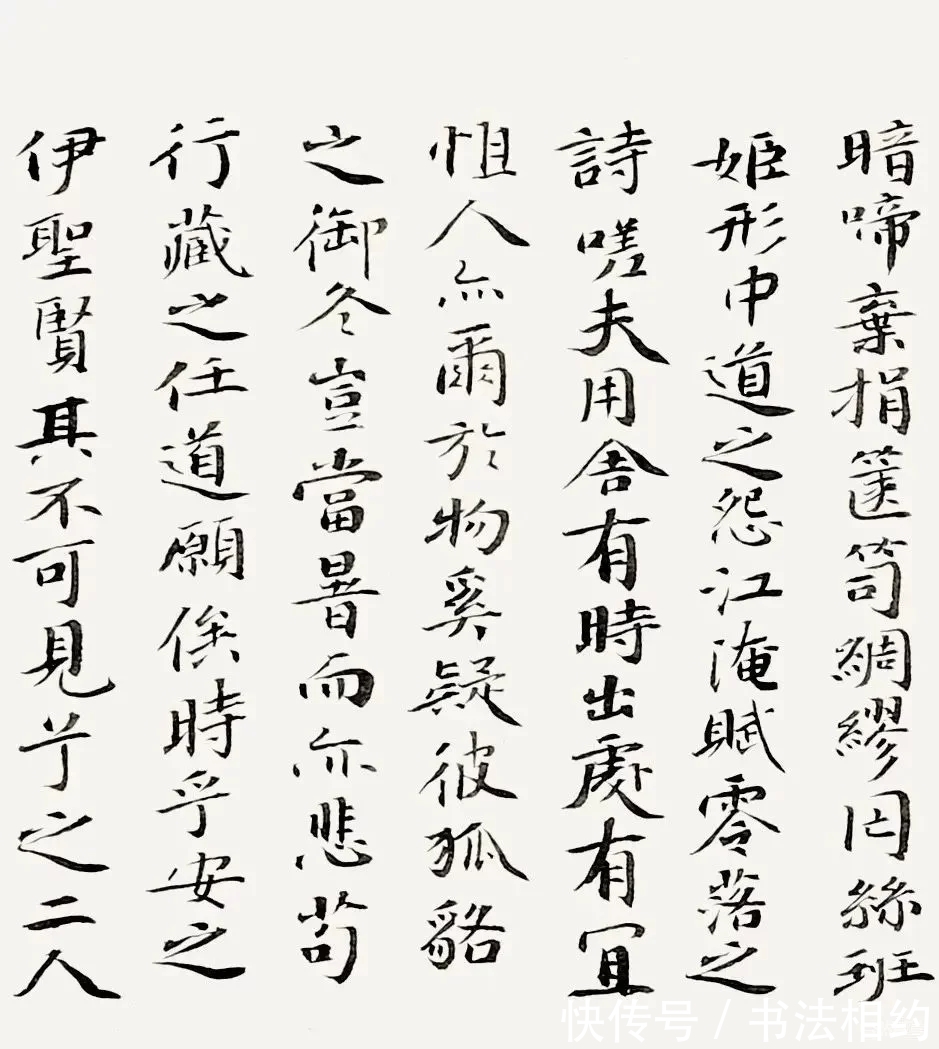 暗啼棄捐篋笥綢繆罔絲班
姬形中道之怨江淹賦零落之
詩嗟夫用舍有時出處有宜
怚人亦爾於物奚疑彼狐貉
之御冬豈當暑而亦悲苟
行藏之任道願俟時乎安之
伊聖賢其不可見兮之二人
快传号/书法相约